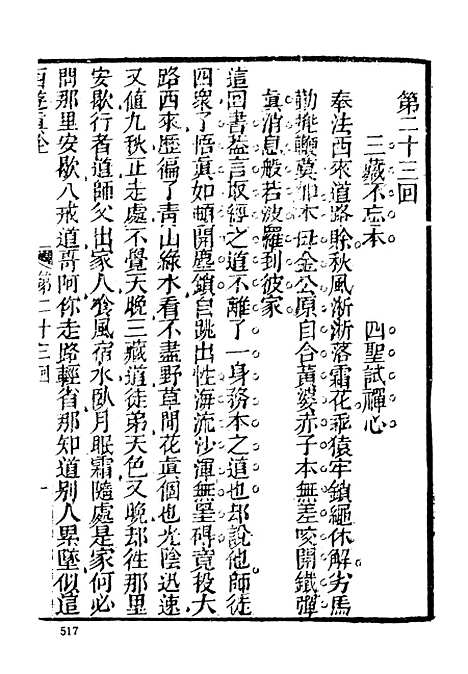 第二十三回
三藏不忘本　四聖試禪心
奉法西來道路賒秋風淅淅落霜花乖猿牢鎖繩休解劣馬
勤兜鞭莫加木母金公原自合黃婆赤子本無差咬開鐵彈
真消息般若波羅到彼家
這回書蓋言取經之道不離了一身務本之道也却說他師徒
四衆了悟真如頓開塵鎖自跳出性海流沙渾無罣碍竟投大
路西來歷徧了青山綠水看不盡野草閒花真個也光陰迅速
又值九秋正走處不覺天晚三藏道徒弟天色又晚却往那里
安歇行者道師父出家人飡風宿水臥月眠霜隨處是家何必
問那里安歇八戒道哥阿你走路輕省那知道別人累墜似這
第二十三回
一
517